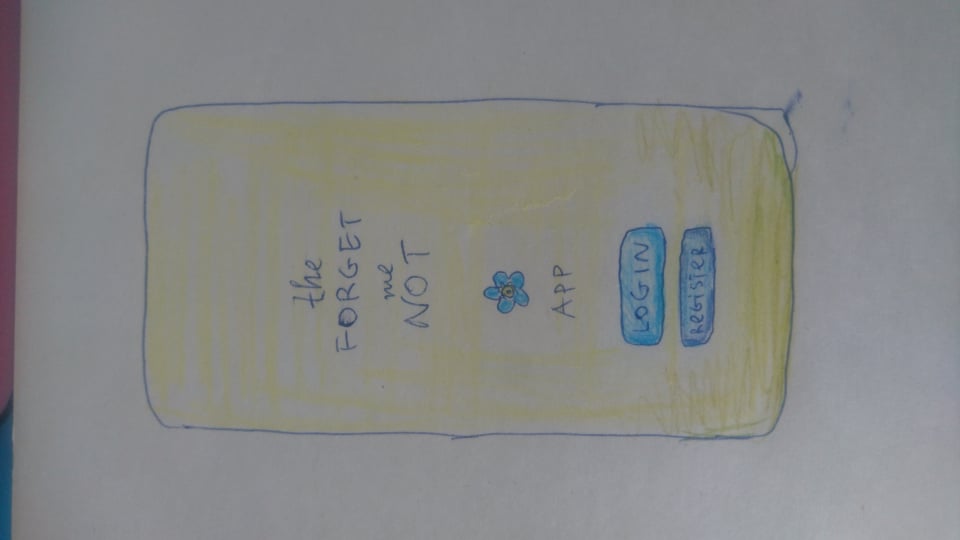 the
FORGET
me
NOT
APP
LOGIN
REGISTER